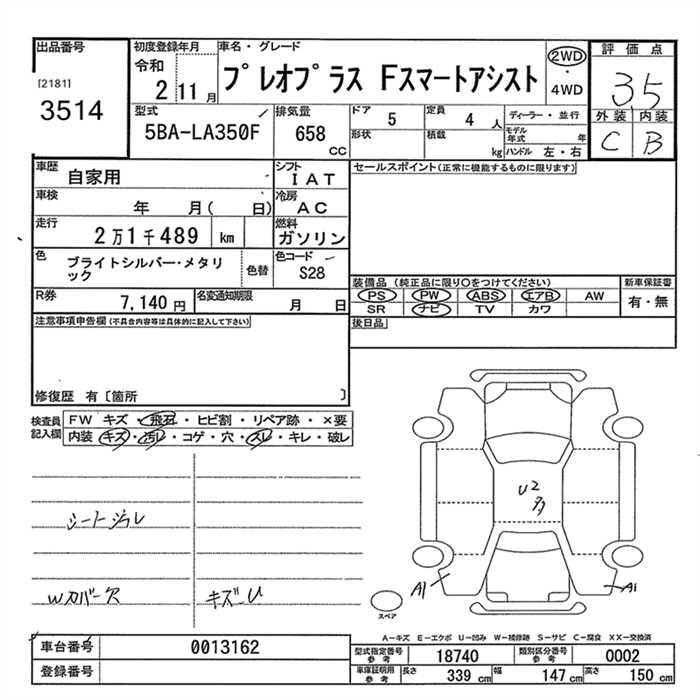 出品番号
[2181]
3514
初度登録年月
令和
2 11 月
車名・グレード
プレオプラス Fスマートアシスト
2WD
・
4WD
評価点
35
外装 内装
C B
型式
5BA-LA350F
排気量
658
CC
ドア
5
定員
4 人
形状
積載
kg
ディーラー・並行
モデル年式 年
ハンドル 左・右
車歴
自家用
シフト
IAT
車検
年 月( 日)
冷房
AC
走行
2万1千489 km
燃料
ガソリン
色
ブライトシルバー・メタリ
ック
色替
色コード
S28
R券
7,140 円
名変通知期限
月 日
セールスポイント(正常に機能するものに限ります)
装備品 (純正品に限り〇をつけてください)
PS PW ABS エアB AW
SR ナビ TV カワ
新車保証書
有・無
後日品
注意事項申告欄(不具合内容等は具体的に記入して下さい)
修復歴 有〔箇所 〕
検査員
記入欄
FW キズ・飛石・ヒビ割・リペア跡・×要
内装 キズ・汚レ・コゲ・穴・スレ・キレ・破レ
シートシワレ
Wカバー欠
キズ U
U2
多
A1
A1
スペア
A-キズ E-エクボ U-凹み W-補修跡 S-サビ C-腐食 XX-交換済
車台番号
0013162
登録番号
型式指定番号
参考
18740
類別区分番号
参考
0002
車庫証明用
参考
長さ
339 cm
幅
147 cm
高さ
150 cm